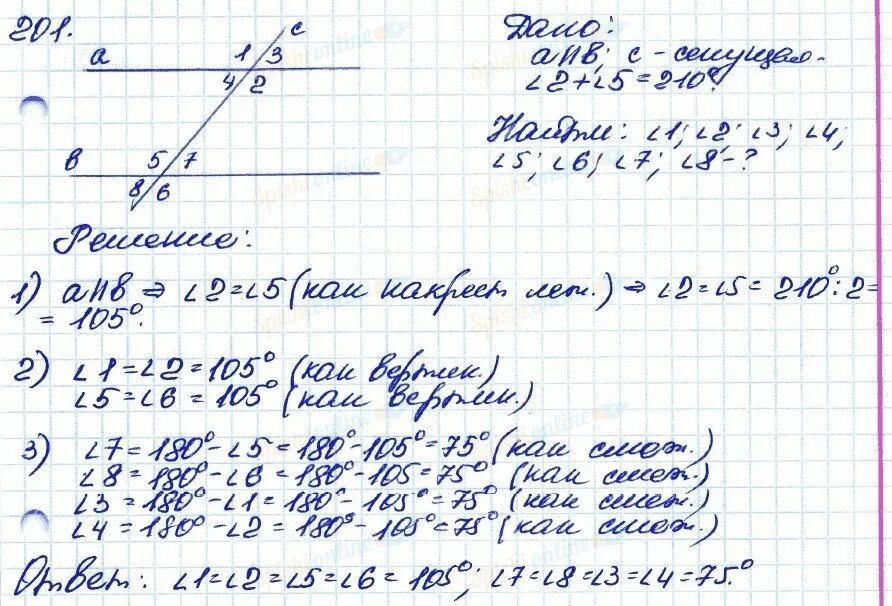 201.
c
a 1 3
4 2
в 5 7
8 6
Дано:
a∥в; c – секущая.
∠2+∠5=210°.
Найти: ∠1; ∠2; ∠3; ∠4;
∠5; ∠6; ∠7; ∠8 – ?
Решение:
1) a∥в ⇒ ∠2=∠5 (как накрест леж.) ⇒ ∠2=∠5= 210°:2=
= 105°.
2) ∠1=∠2=105° (как вертик.)
∠5=∠6 = 105° (как вертик.)
3) ∠7=180°-∠5=180°-105°=75° (как смеж.)
∠8=180°-∠6=180°-105=75° (как смеж.)
∠3=180°-∠1=180°-105°=75° (как смеж.)
∠4=180°-∠2=180°-105°=75° (как смеж.)
Ответ: ∠1=∠2=∠5=∠6=105°; ∠7=∠8=∠3=∠4=75°.